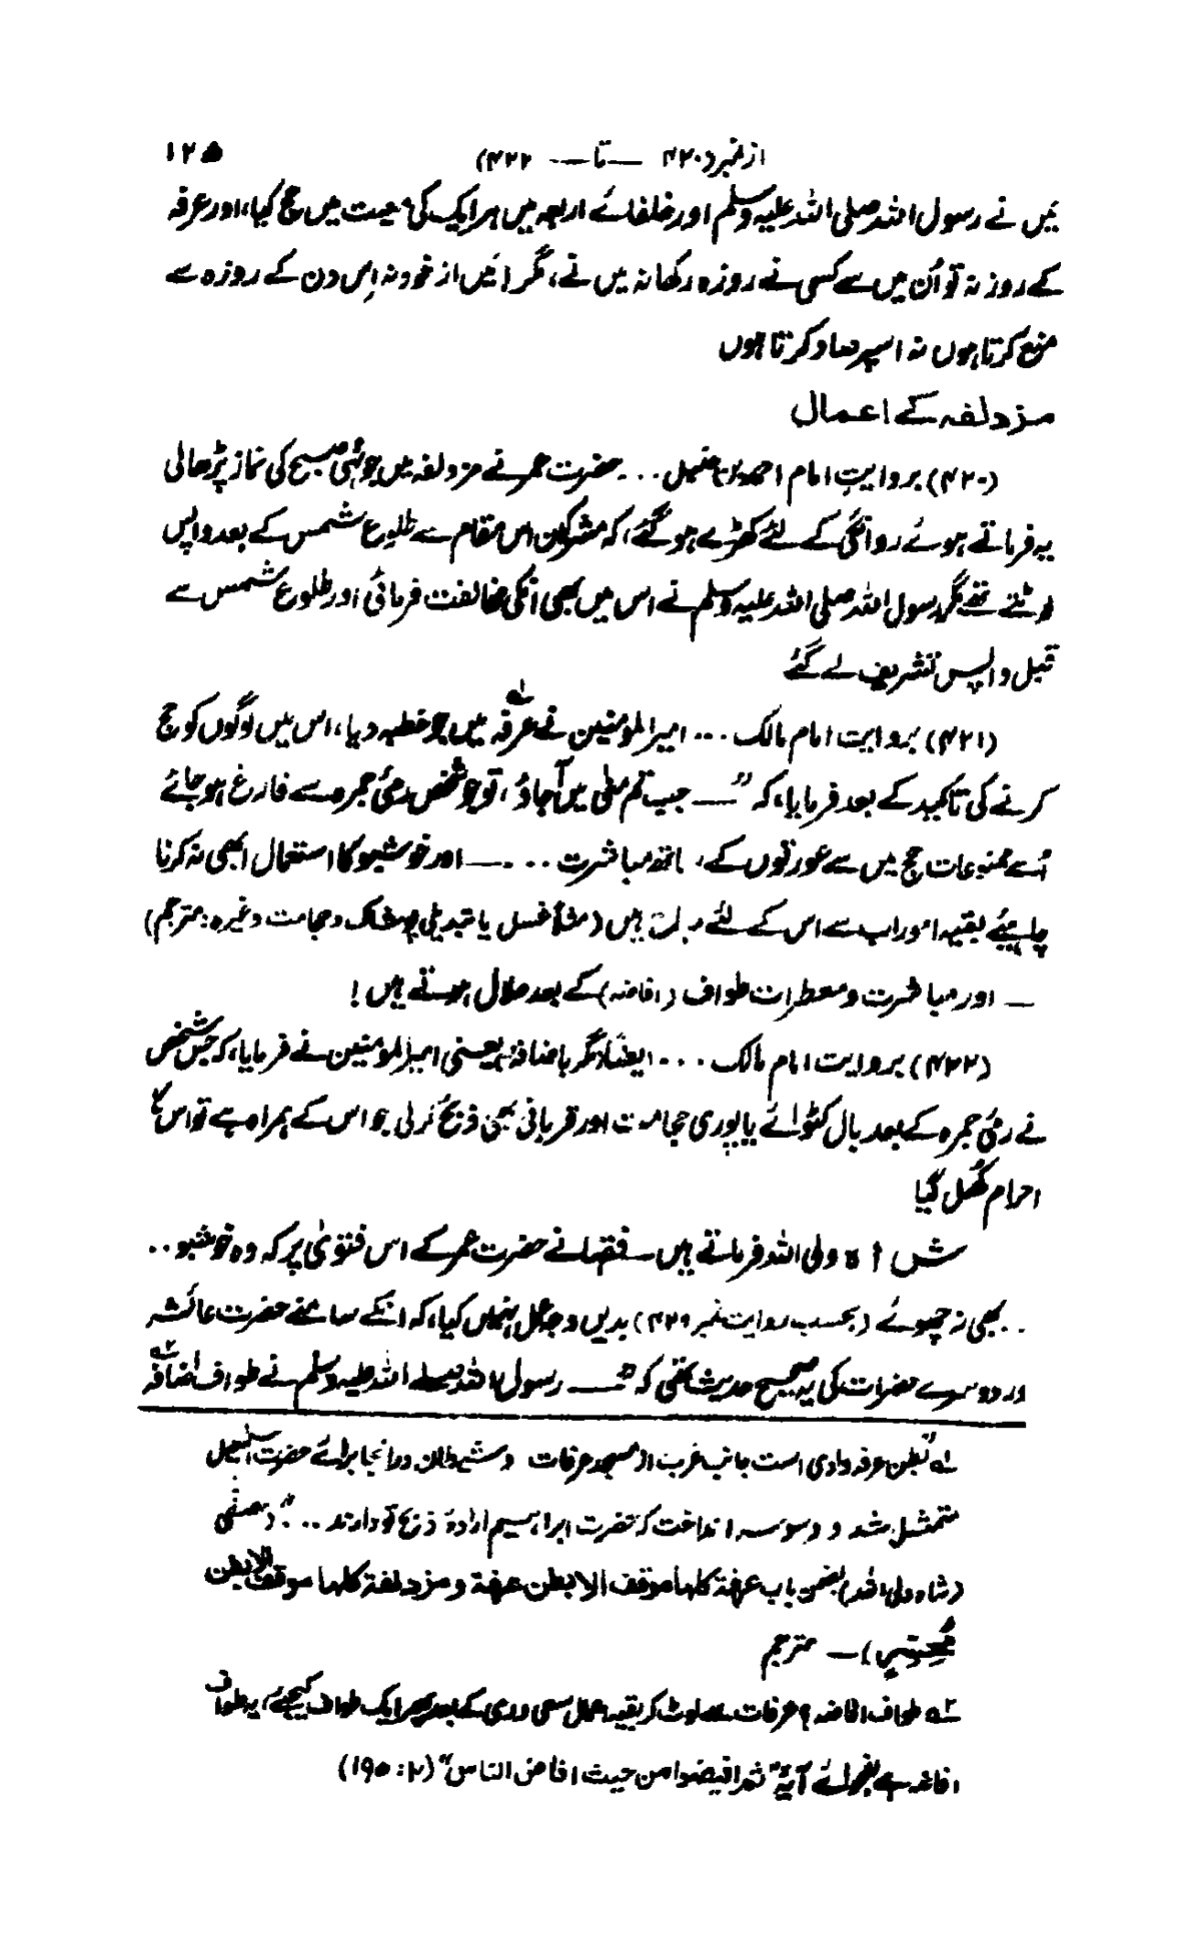 از نمبر (۴۲۰ — تا — ۴۲۲) ۱۲۵
میں نے رسول اللہ صلی اللہ علیہ وسلم اور خلفائے اربعہ میں ہر ایک کی معیت میں حج کیا، اور عرفہ
کے روز نہ تو اُن میں سے کسی نے روزہ رکھا نہ میں نے، مگر میں از خود نہ اِس دن کے روزہ سے
منع کرتا ہوں نہ اسپر صاد کرتا ہوں
مزدلفہ کے اعمال
(۴۲۰) بروایتِ امام احمد بن حنبل ... حضرت عمر نے مزدلفہ میں جونہی صبح کی نماز پڑھالی
یہ فرماتے ہوئے روانگی کے لئے کھڑے ہو گئے، کہ مشرکین اس مقام سے طلوع شمس کے بعد واپس
لوٹتے تھے مگر رسول اللہ صلی اللہ علیہ وسلم نے اس میں بھی انکی مخالفت فرمائی اور طلوع شمس سے
قبل واپس تشریف لے گئے
(۴۲۱) بروایت امام مالک ... امیر المومنین نے عرفہ۱ میں جو خطبہ دیا، اس میں لوگوں کو حج
کرنے کی تاکید کے بعد فرمایا، کہ ”— جب تم منٰی میں آجاؤ، تو جو شخص رمئ جمرہ سے فارغ ہو جائے
اُسے ممنوعات حج میں سے عورتوں کے ساتھ مباشرت ... — اور خوشبو کا استعمال ابھی نہ کرنا
چاہیئے بقیہ امور اب سے اس کے لئے مباح ہیں (مثلاً غسل یا تبدیلی پوشاک و حجامت وغیرہ: مترجم)
— اور مباشرت و معطرات طواف (افاضہ) کے بعد حلال ہوتے ہیں!
(۴۲۲) بروایت امام مالک ... ایضاً دگر باضافۂ یعنی امیر المومنین نے فرمایا، کہ جس شخص
نے رمئ جمرہ کے بعد بال کٹوائے یا پوری حجامت اور قربانی بھی ذبح کر لی جو اس کے ہمراہ ہے تو اس کا
احرام کُھل گیا
شاہ ولی اللہ فرماتے ہیں — فقہا نے حضرت عمر کے اس فتویٰ پر کہ وہ خوشبو ..
.. بھی نہ چھوئے (بحسب روایت نمبر ۴۲۱) بدیں وجہ عمل نہیں کیا، کہ انکے سامنے حضرت عائشہ
اور دوسرے حضرات کی یہ صحیح حدیث تھی کہ ”— رسول اللہ صلے اللہ علیہ وسلم نے طواف افاضہ۲
۱؎ ”بطن عرفہ وادی است جانب غرب از مسجد عرفات و شیطان در انجا برائے حضرت اسمٰعیل
متمثل شد و وسوسہ انداخت کہ حضرت ابراہیم ارادۂ ذبح تو دارند ...“ (مصفّٰی
(شاہ ولی اللہ) بضمن باب عرفة کلھا موقف الا بطن عرفة و مزدلفة کلھا موقف الا بطن
مُحسّر) — مترجم
۲؎ طواف افاضہ؟ عرفات سے لوٹ کر بقیہ اعمال سعی و رمی کے بعد پھر ایک طواف کیجئے، یہ طواف
افاضہ ہے بفحوائے آیۂ ”ثم افیضوا من حیث افاض الناس“ (۲: ۱۹۵)